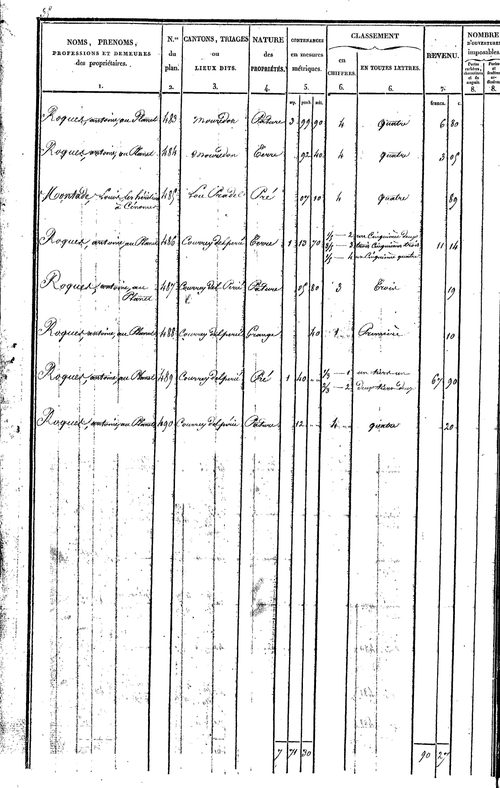 NOMS, PRENOMS,
PROFESSIONS ET DEMEURES
des propriétaires.
N.os
du
plan.
CANTONS, TRIAGES
ou
LIEUX DITS.
NATURE
des
PROPRIÉTÉS.
CONTENANCES
en mesures
métriques.
CLASSEMENT
en
CHIFFRES.
EN TOUTES LETTRES.
REVENU.
NOMBRE
D'OUVERTURES
imposables.
1. 2. 3. 4. 5. 6. 6. 7. 8. 8.
francs. c.
Roques, antoine, au Planel 483 Mouredon Pâture 3 99 90 4 quatre 6 80
Roques antoine, au Planel 484 Mouredon Terre 92 40 4 quatre 3 05
Montade, Louis 485 Lou Pradel Pré 07 10 4 quatre 89
Roques, antoine au Planel 486 Couvrey del perié Terre 1 13 70 1/5 2 un cinquième deux
3/5 3 trois cinquièmes trois 11 14
1/5 4 un cinquième quatre
Roques, antoine, au
Planel 487 Couvrey del Perié Pâture 05 80 3 Trois 19
Roques, antoine, au Planel 488 Couvrey del perié Grange 40 1 Première 10
Roques, antoine, au Planel 489 Couvrey del perié Pré 1 40 1/3 1 un tiers un
2/3 2 deux tiers deux 67 90
Roques, antoine, au Planel 490 Couvrey del perié Pâture 12 4 quatre 20
7 71 30 90 27